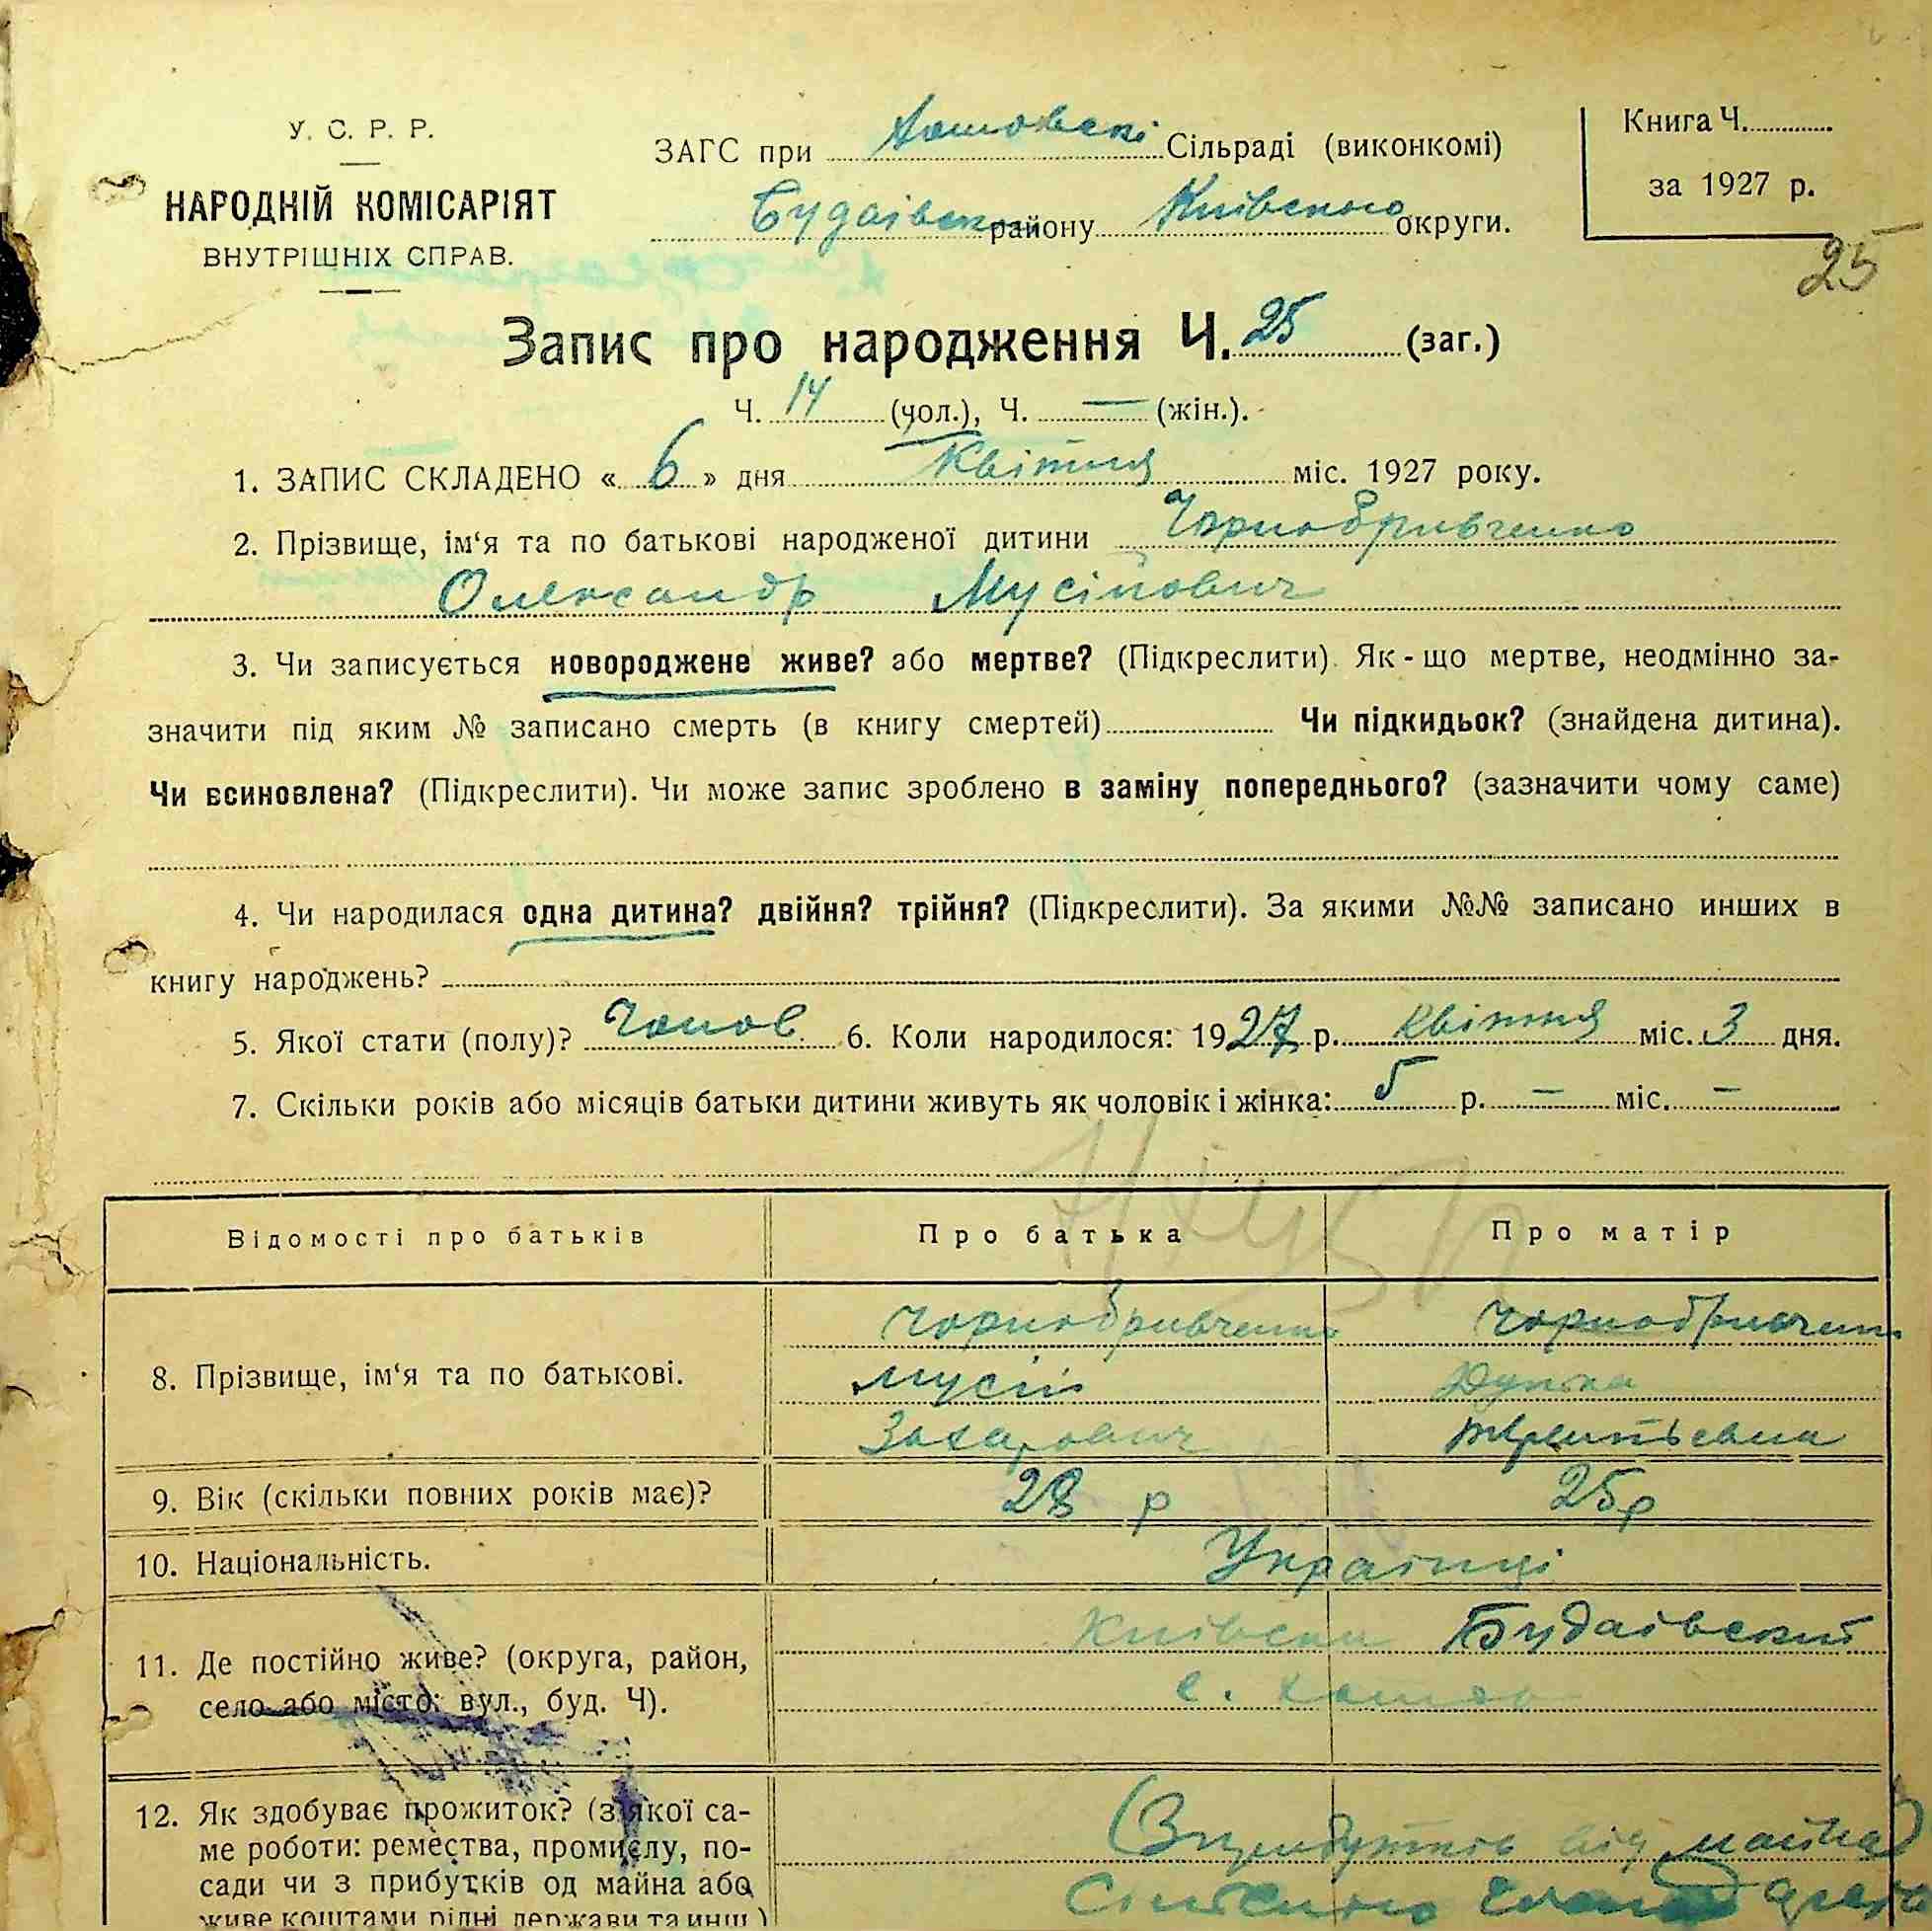 У. С. Р. Р.
НАРОДНІЙ КОМІСАРІЯТ
ВНУТРІШНІХ СПРАВ.
ЗАГС при Хотовскі Сільраді (виконкомі)
Будаівськ району Київського округи.
Книга Ч.
за 1927 р.
25
Запис про народження Ч. 25 (заг.)
Ч. 14 (чол.), Ч. — (жін.).
1. ЗАПИС СКЛАДЕНО « 6 » дня Квітня міс. 1927 року.
2. Прізвище, ім‘я та по батькові народженої дитини Чорнобривченко
Олександр Мусіпович
3. Чи записується новороджене живе? або мертве? (Підкреслити). Як-що мертве, неодмінно за-
значити під яким № записано смерть (в книгу смертей) Чи підкидьок? (знайдена дитина).
Чи всиновлена? (Підкреслити). Чи може запис зроблено в заміну попереднього? (зазначити чому саме)
4. Чи народилася одна дитина? двійня? трійня? (Підкреслити). За якими №№ записано инших в
книгу народжень?
5. Якої стати (полу)? Чолов. 6. Коли народилося: 1927 р. Квітня міс. 3 дня.
7. Скільки років або місяців батьки дитини живуть як чоловік і жінка: 5 р. — міс. —
Відомості про батьків Про батька Про матір
8. Прізвище, ім‘я та по батькові.
Чорнобривченко Чорнобривченко
Мусій
Захарович Терентьевна
9. Вік (скільки повних років має)? 28 р 25 р
10. Національність. Українці
11. Де постійно живе? (округа, район,
село або місто: вул., буд. Ч).
Київски Будаівский
с. Хотов
12. Як здобуває прожиток? (з якої са-
ме роботи: ремества, промислу, по-
сади чи з прибутків од майна або
живе коштами рідні держави та инш.)
(З прибутків від майна)